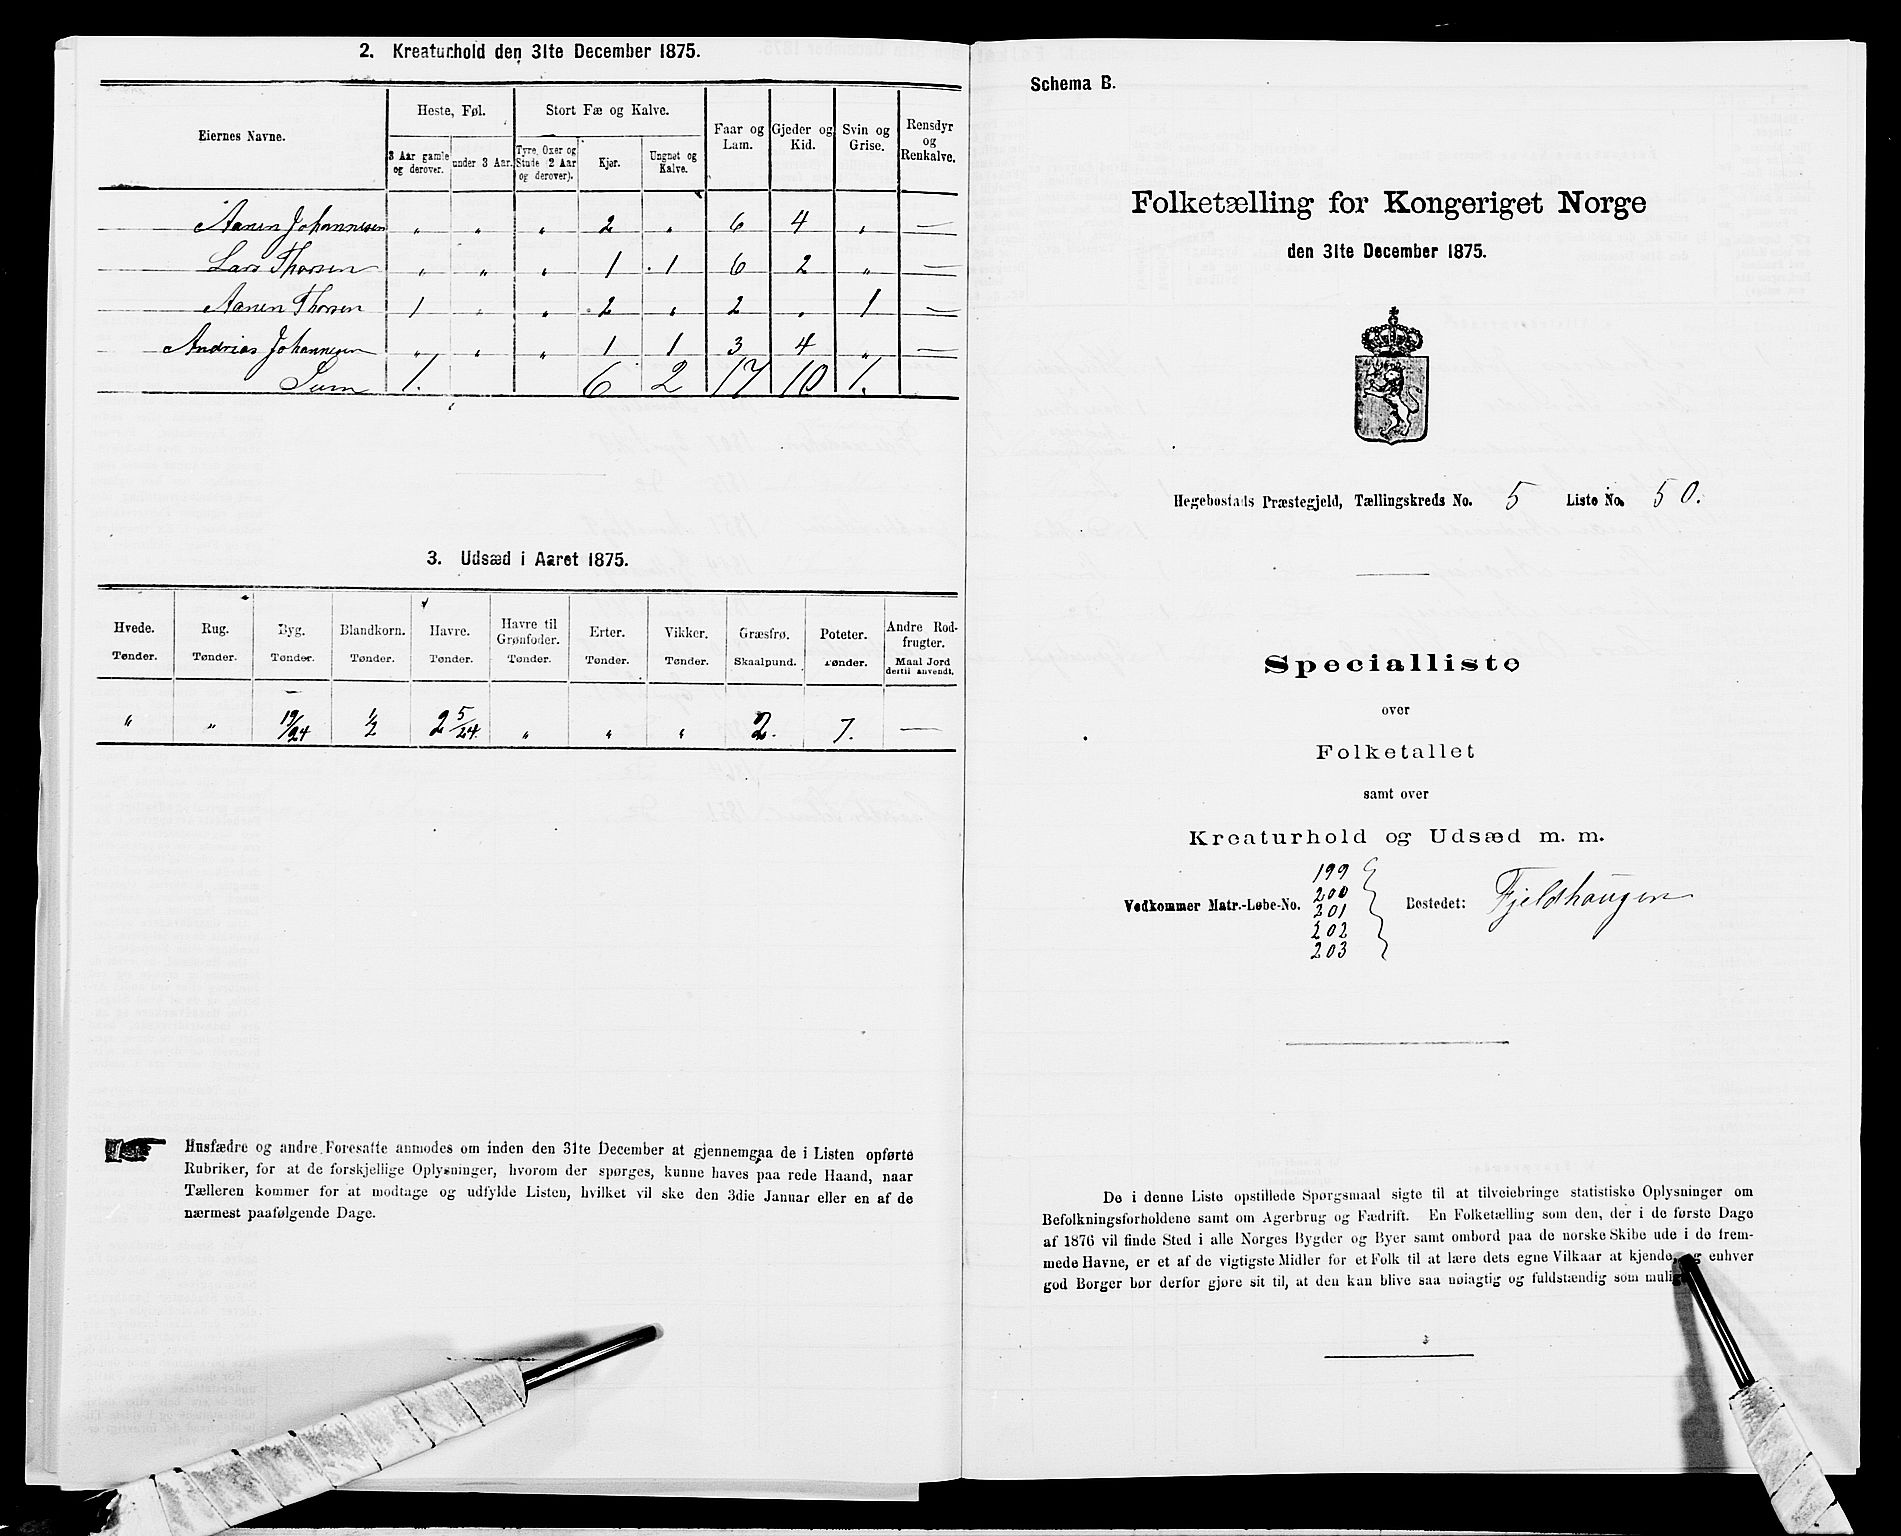 2. Kreaturhold den 31te December 1875.
Eiernes Navne.
Heste, Føl.
Stort Fæ og Kalve.
Faar og Lam.
Gjeder og Kid.
Svin og Grise.
Rensdyr og Renkalve.
3 Aar gamle og derover.
under 3 Aar.
Tyre, Oxer og Stude 2 Aar og derover).
Kjør.
Ungnøt og Kalve.
Aanen Johannesen " " " 2 " 6 4 " —
Lars Thorsen " " " 1 1 6 2 " —
Aanen Thorsen 1 " " 2 " 2 " 1 —
Andrias Johannesen " " " 1 1 3 4 " —
Sum 1. 6 2 17 10 1.
3. Udsæd i Aaret 1875.
Hvede. Tønder.
Rug. Tønder.
Byg. Tønder.
Blandkorn. Tønder.
Havre. Tønder.
Havre til Grønfoder. Tønder.
Erter. Tønder.
Vikker. Tønder.
Græsfrø. Skaalpund.
Poteter. Tønder.
Andre Rodfrugter. Maal Jord dertil anvendt.
" " 19/24 1/2 2 5/24 " " " 2. 7. —
Husfædre og andre Foresatte anmodes om inden den 31te December at gjennemgaa de i Listen opførte
Rubriker, for at de forskjellige Oplysninger, hvorom der spørges, kunne haves paa rede Haand, naar
Tælleren kommer for at modtage og udfylde Listen, hvilket vil ske den 3die Januar eller en af de
nærmest paafølgende Dage.
Schema B.
Folketælling for Kongeriget Norge
den 31te December 1875.
Hegebostads Præstegjeld, Tællingskreds No. 5 Liste No. 50.
Specialliste
over
Folketallet
samt over
Kreaturhold og Udsæd m. m.
Vedkommer Matr.-Løbe-No. 199 200 201 202 203 Bostedet: Fjeldhaugen
De i denne Liste opstillede Spørgsmaal sigte til at tilveiebringe statistiske Oplysninger om
Befolkningsforholdene samt om Agerbrug og Fædrift. En Folketælling som den, der i de første Dage
af 1876 vil finde Sted i alle Norges Bygder og Byer samt ombord paa de norske Skibe ude i de frem-
mede Havne, er et af de vigtigste Midler for et Folk til at lære dets egne Vilkaar at kjende, og enhver
god Borger bør derfor gjøre sit til, at den kan blive saa nøiagtig og fuldstændig som mulig